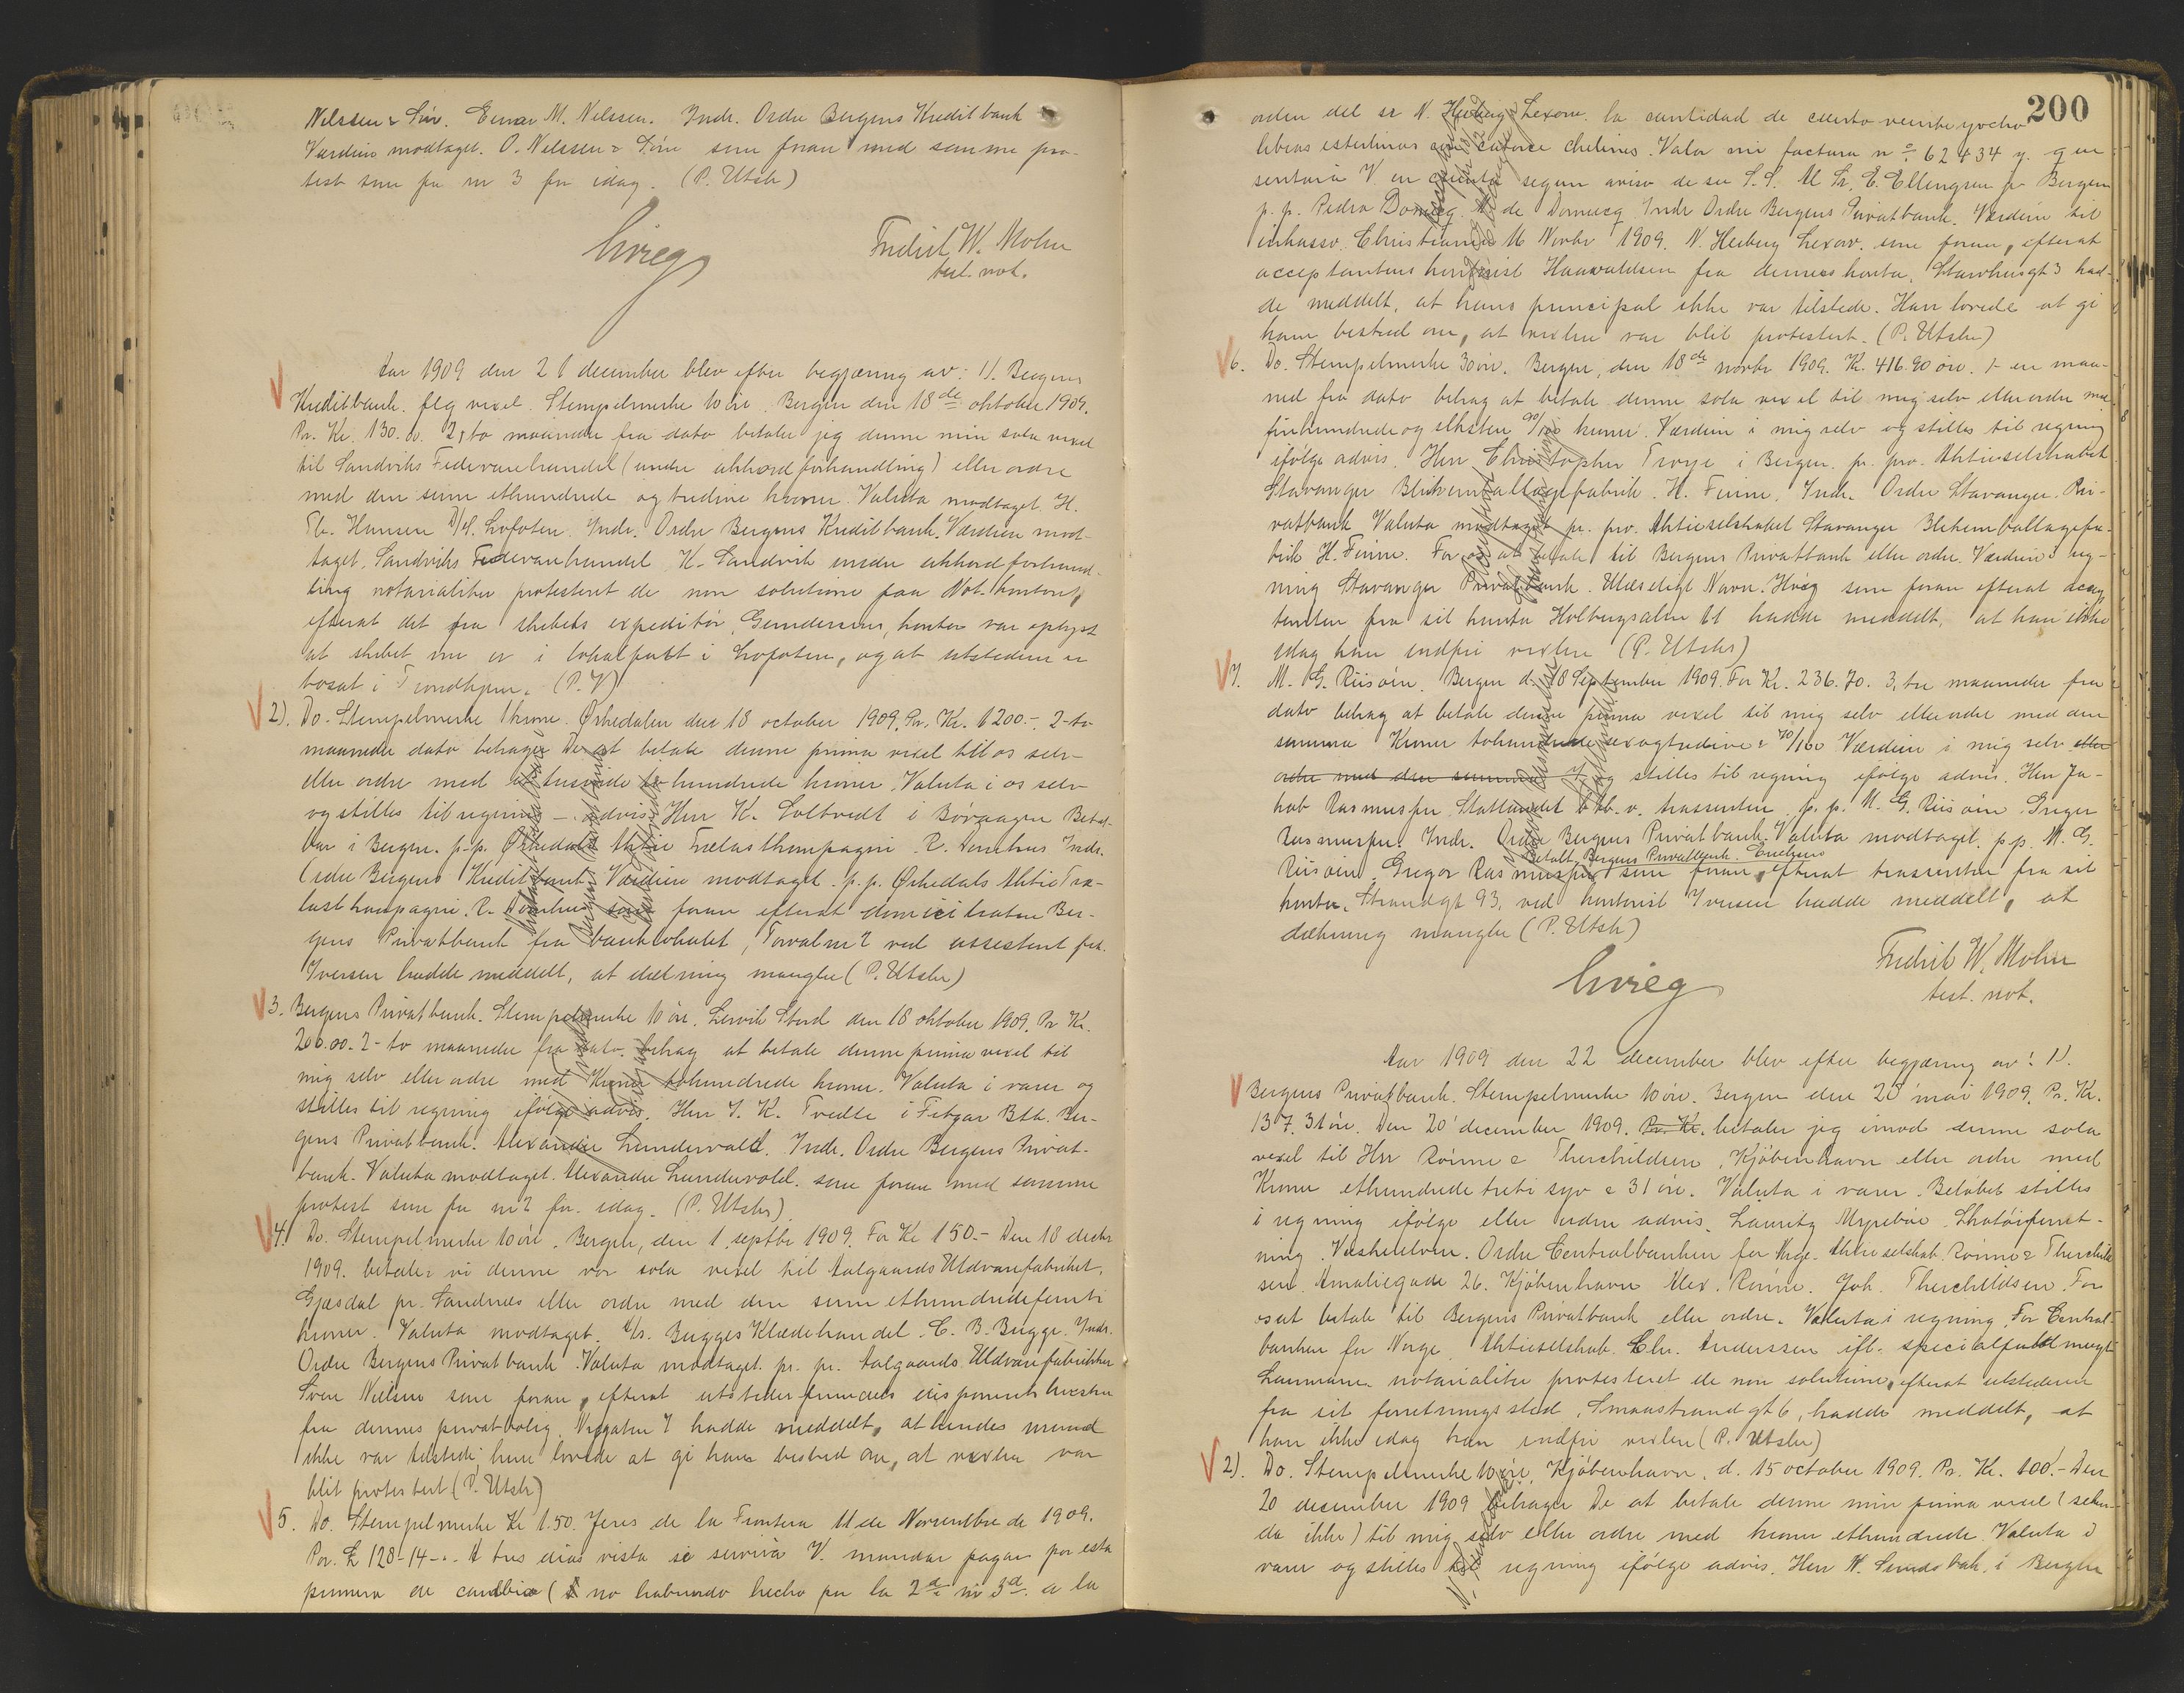 Nilssen & Søn. Einar M. Nilssen. Indr. Ordre Bergens Kreditbank
Værdien modtaget. O. Nilssen & Søn som foran med samme pro-
test som fra nr 3 for idag. (P. Utskr)
Grieg
Fredrik W. Mohn
test. not.
Aar 1909 den 21 december blev efter begjæring av: 1). Bergens
Kreditbank. flg vexel. Stempelmerke 10 øre. Bergen den 18de oktober 1909.
Pr. Kr. 130.00. 2, to maaneder fra dato betaler jeg denne min sola vexel
til Sandviks Fedevarehandel (under akkordforhandling) eller ordre
med den sum ethundrede og tredive kroner. Valuta modtaget. H.
Th. Hansen D/S. Lofoten. Indr. Ordre Bergens Kreditbank. Værdien mod-
taget. Sandviks Fedevarehandel K. Sandvik under akkordforhand-
ling notarialiter protesteret de non solutione paa Not. kontoret,
efterat det fra skibets expeditør, Gundersens, kontor var oplyst
at skibet nu er i lokalfart i Lofoten, og at utstederen er
bosat i Trondhjem. (P. V)
2). Do. Stempelmerke 1 krone. Ørkedalen den 18 october 1909. Pr. Kr. 1200.-. 2-to
maaneder dato behager De at betale denne prima vexel til os selv
eller ordre med et tusinde to hundrede kroner. Valuta i os selv
og stilles til regning - advis Herr K. Soltvedt i Børaagen Betal-
bar i Bergen. p.p. Ørkedals Aktie Trælastkompagni. R. Domhus Indr.
Ordre Bergens Kreditbank. Værdien modtaget. p.p. Ørkedals Aktie Træ-
lastkompagni. R. Domhus som foran efterat domiciliaten Ber-
gens Privatbank fra banklokalet, Torvalm 2 ved assistent frk.
Iversen hadde meddelt, at dækning mangler (P. Utskr)
3. Bergens Privatbank. Stempelmerke 10 øre. Lervik Stord den 18 oktober 1909. Pr Kr.
200.00. 2-to maaneder fra dato behag at betale denne prima vexel til
mig selv eller ordre med Kroner tohundrede kroner. Valuta i varer og
stilles til regning ifølge advis. Herr J. K. Tvedte i Fitjar Btb. Ber-
gens Privatbank. Alexander Lundervold. Indr. Ordre Bergens Privat-
bank. Valuta modtaget. Alexander Lundervold. som foran med samme
protest som fra nr 2 for idag. (P. Utskr)
4. Do. Stempelmerke 10 øre. Bergen, den 1. septbr 1909. For Kr 150.- Den 18 decbr
1909. betaler vi denne vor sola vexel til Aalgaards Uldvarefabriker,
Gjæsdal pr. Sandnes eller ordre med den sum ethundredefemti
kroner. Valuta modtaget. A/s. Brygges Klædehandel. C. B. Brygge. Indr.
Ordre Bergens Privatbank. Valuta modtaget. pr. pr. Aalgaards Uldvarefabrikker
Sven Nielsen som foran, efterat utstederfirmaets disponents hustru
fra dennes privatbolig, Nygaten 7 hadde meddelt, at hendes mand
ikke var tilstede; hun lovede at gi ham besked om, at vexlen var
blit protestert (P. Utskr)
5. Do. Stempelmerke Kr 1.50. Jeres de la Frontera 11 de Noviembre de 1909.
Por. £ 128-14-.. A tres dias vista se servira V. mandar pagar por esta
primera de cambio (no habiendo hecho por la 2a ni 3a. a la
200
orden del sr N. Heiberg Lexow. la cantidad de ciento veinte y ocho
libras esterlinas con catorce chelines. Valor mi factura no. 62434 y. que
sentara V. en cuenta segun aviso de su S.S. Al Sr. E. Ellengren pr Bergen
p.p. Pedro Domecq. M de Domecq Indr Ordre Bergens Privatbank. Værdien til
inkasso. Christiania 16 Novbr 1909. N. Heiberg Lexow. som foran, efterat
acceptantens kontorist Haavaldsen fra dennes kontor, Starvhusgt 3 had-
de meddelt, at hans principal ikke var tilstede. Han lovede at gi
ham besked om, at vexlen var blit protestert. (P. Utskr)
6. Do. Stempelmerke 30 øre. Bergen, den 18de novbr 1909. Kr. 416.90 øre. 1- en maa-
ned fra dato behag at betale denne sola vexel til mig selv eller ordre med
firehundrede og seksten 90/100 kroner. Værdien i mig selv og stilles til regning
ifølge advis. Herr Christopher Troye i Bergen. pr. pro. Aktieselskabet
Stavanger Blikemballagefabrik. H. Finne. Indr. Ordre Stavanger Pri-
vatbank Valuta modtaget pr. pro. Aktieselskabet Stavanger Blikemballagefa-
brik H. Finne. For os at betale til Bergens Privatbank eller ordre. Værdien i reg-
ning Stavanger Privatbank. Ulæseligt Navn. Hvag som foran efterat accep-
tanten fra sit kontor Holbergsalm 11 hadde meddelt, at han ikke
idag kan indfri vexlen (P. Utskr)
7. M. G. Riisøen. Bergen d. 18 September 1909. For Kr. 236.70. 3, tre maaneder fra
dato behag at betale denne prima vexel til mig selv eller ordre med den
summa Kroner tohundrede sexogtredive & 70/100 Værdien i mig selv eller
ordre med den summa og stilles til regning ifølge advis. Herr Ja-
kob Rasmussen. Statlandet btb. v. trassenten p.p. M. G. Riisøen. Greger
Rasmussen. Indr. Ordre Bergens Privatbank. Valuta modtaget. p.p. M. G.
Betalt Bergens Privatbank.
Riisøen Gregor Rasmussen som foran, efterat trassenten fra sit
kontor, Strandgt 93, ved kontorist Iversen hadde meddelt, at
dækning mangler (P. Utskr)
Fredrik W. Mohn
test. not.
Grieg
Aar 1909 den 22 december blev efter begjæring av: 1).
Bergens Privatbank. Stempelmerke 10 øre. Bergen den 25 mai 1909. Pr. Kr.
137.31 øre. Den 20 december 1909. Pr. Kr. betaler jeg imod denne sola
vexel til Herr Rönne & Therchildsen, Kjöbenhavn eller ordre med
Kroner ethundrede treti syv & 31 øre. Valuta i varer. Beløbet stilles
i regning ifølge eller uden advis. Lauritz Myrebøe Skotøiforret-
ning. Vaskerelven. Ordre Centralbanken for Norge. Aktieselskab. Rönne & Therchild
sen. Amaliegade 26. Kjöbenhavn Alex. Rönne. Joh. Therchildsen. For
os at betale til Bergens Privatbank eller ordre. Valuta i regning. For Central-
banken for Norge Aktieselskab. Chr. Anderssen ifl. specialfuldmagt
Laumann notarialiter protesteret de non solutione, efterat utstederen
fra sit forretningssted, Smaastrandgt 6, hadde meddelt, at
han ikke idag kan indfri vexlen (P. Utskr)
2). Do. Stempelmerke 10 øre, Kjöbenhavn, d. 15 october 1909. Pr. Kr. 100.- Den
20 december 1909 behager De at betale denne min prima vexel (sekun-
da ikke) til mig selv eller ordre med kroner ethundrede. Valuta i
varer og stilles til regning ifølge advis. Herr N. Sundsbak, i Bergen